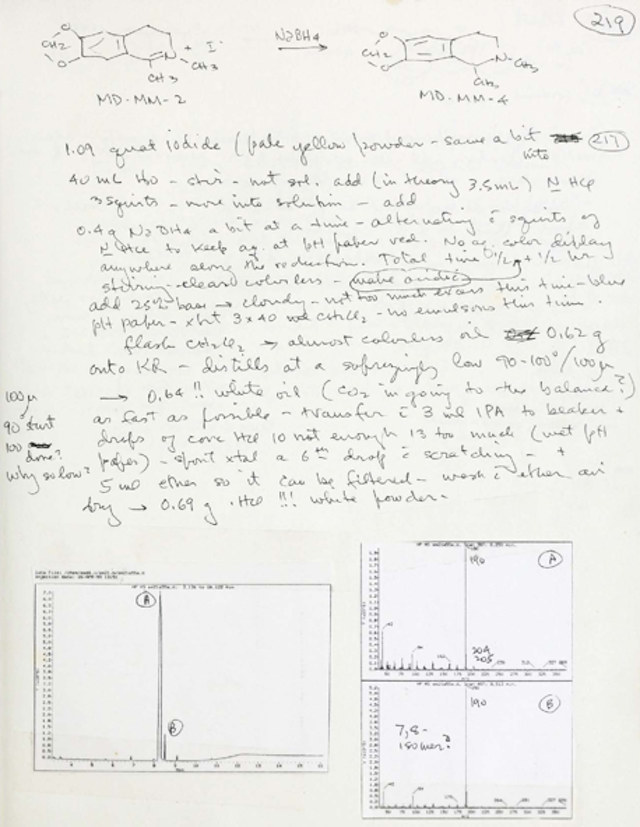 219
CH2 O O + I⁻ N CH3 CH3
NaBH4
CH2 O O N-CH3 CH3
MD-MM-2
MD-MM-4
1.09 quat iodide (pale yellow powder - same a bit 217
into
40 mL H2O - stir - not sol. add (in theory 3.5 mL) N HCl
3 squirts - more into solution - add
0.4 g NaBH4 a bit at a time - alternating c̄ squirts of
N HCl to keep aq. at pH paper red. No color display
anywhere along the reduction. Total time 1/2 + 1/2 hr
stirring - clear colorless - make acidic
add 25% NaOH → cloudy - not too much excess this time - blue
pH paper - xtrct 3 x 40 ml CH2Cl2 - no emulsions this time.
flash CH2Cl2 → almost colorless oil 0.62 g
onto KR - distills at a surprizingly low 90-100°/100μ
→ 0.64 !! white oil (CO2 in going to the balance?)
as fast as possible - transfer c̄ 3 ml IPA to beaker +
drops of conc HCl 10 not enough 13 too much (wet pH
paper) - spont xtal a 6th drop c̄ scratching - +
5 ml ether so it can be filtered - wash c̄ ether air
dry → 0.69 g ·HCl !!! white powder.
100μ
90° start
100 done?
why so low?
A
B
A
190
204
205
B
190
7,8-
isomer?